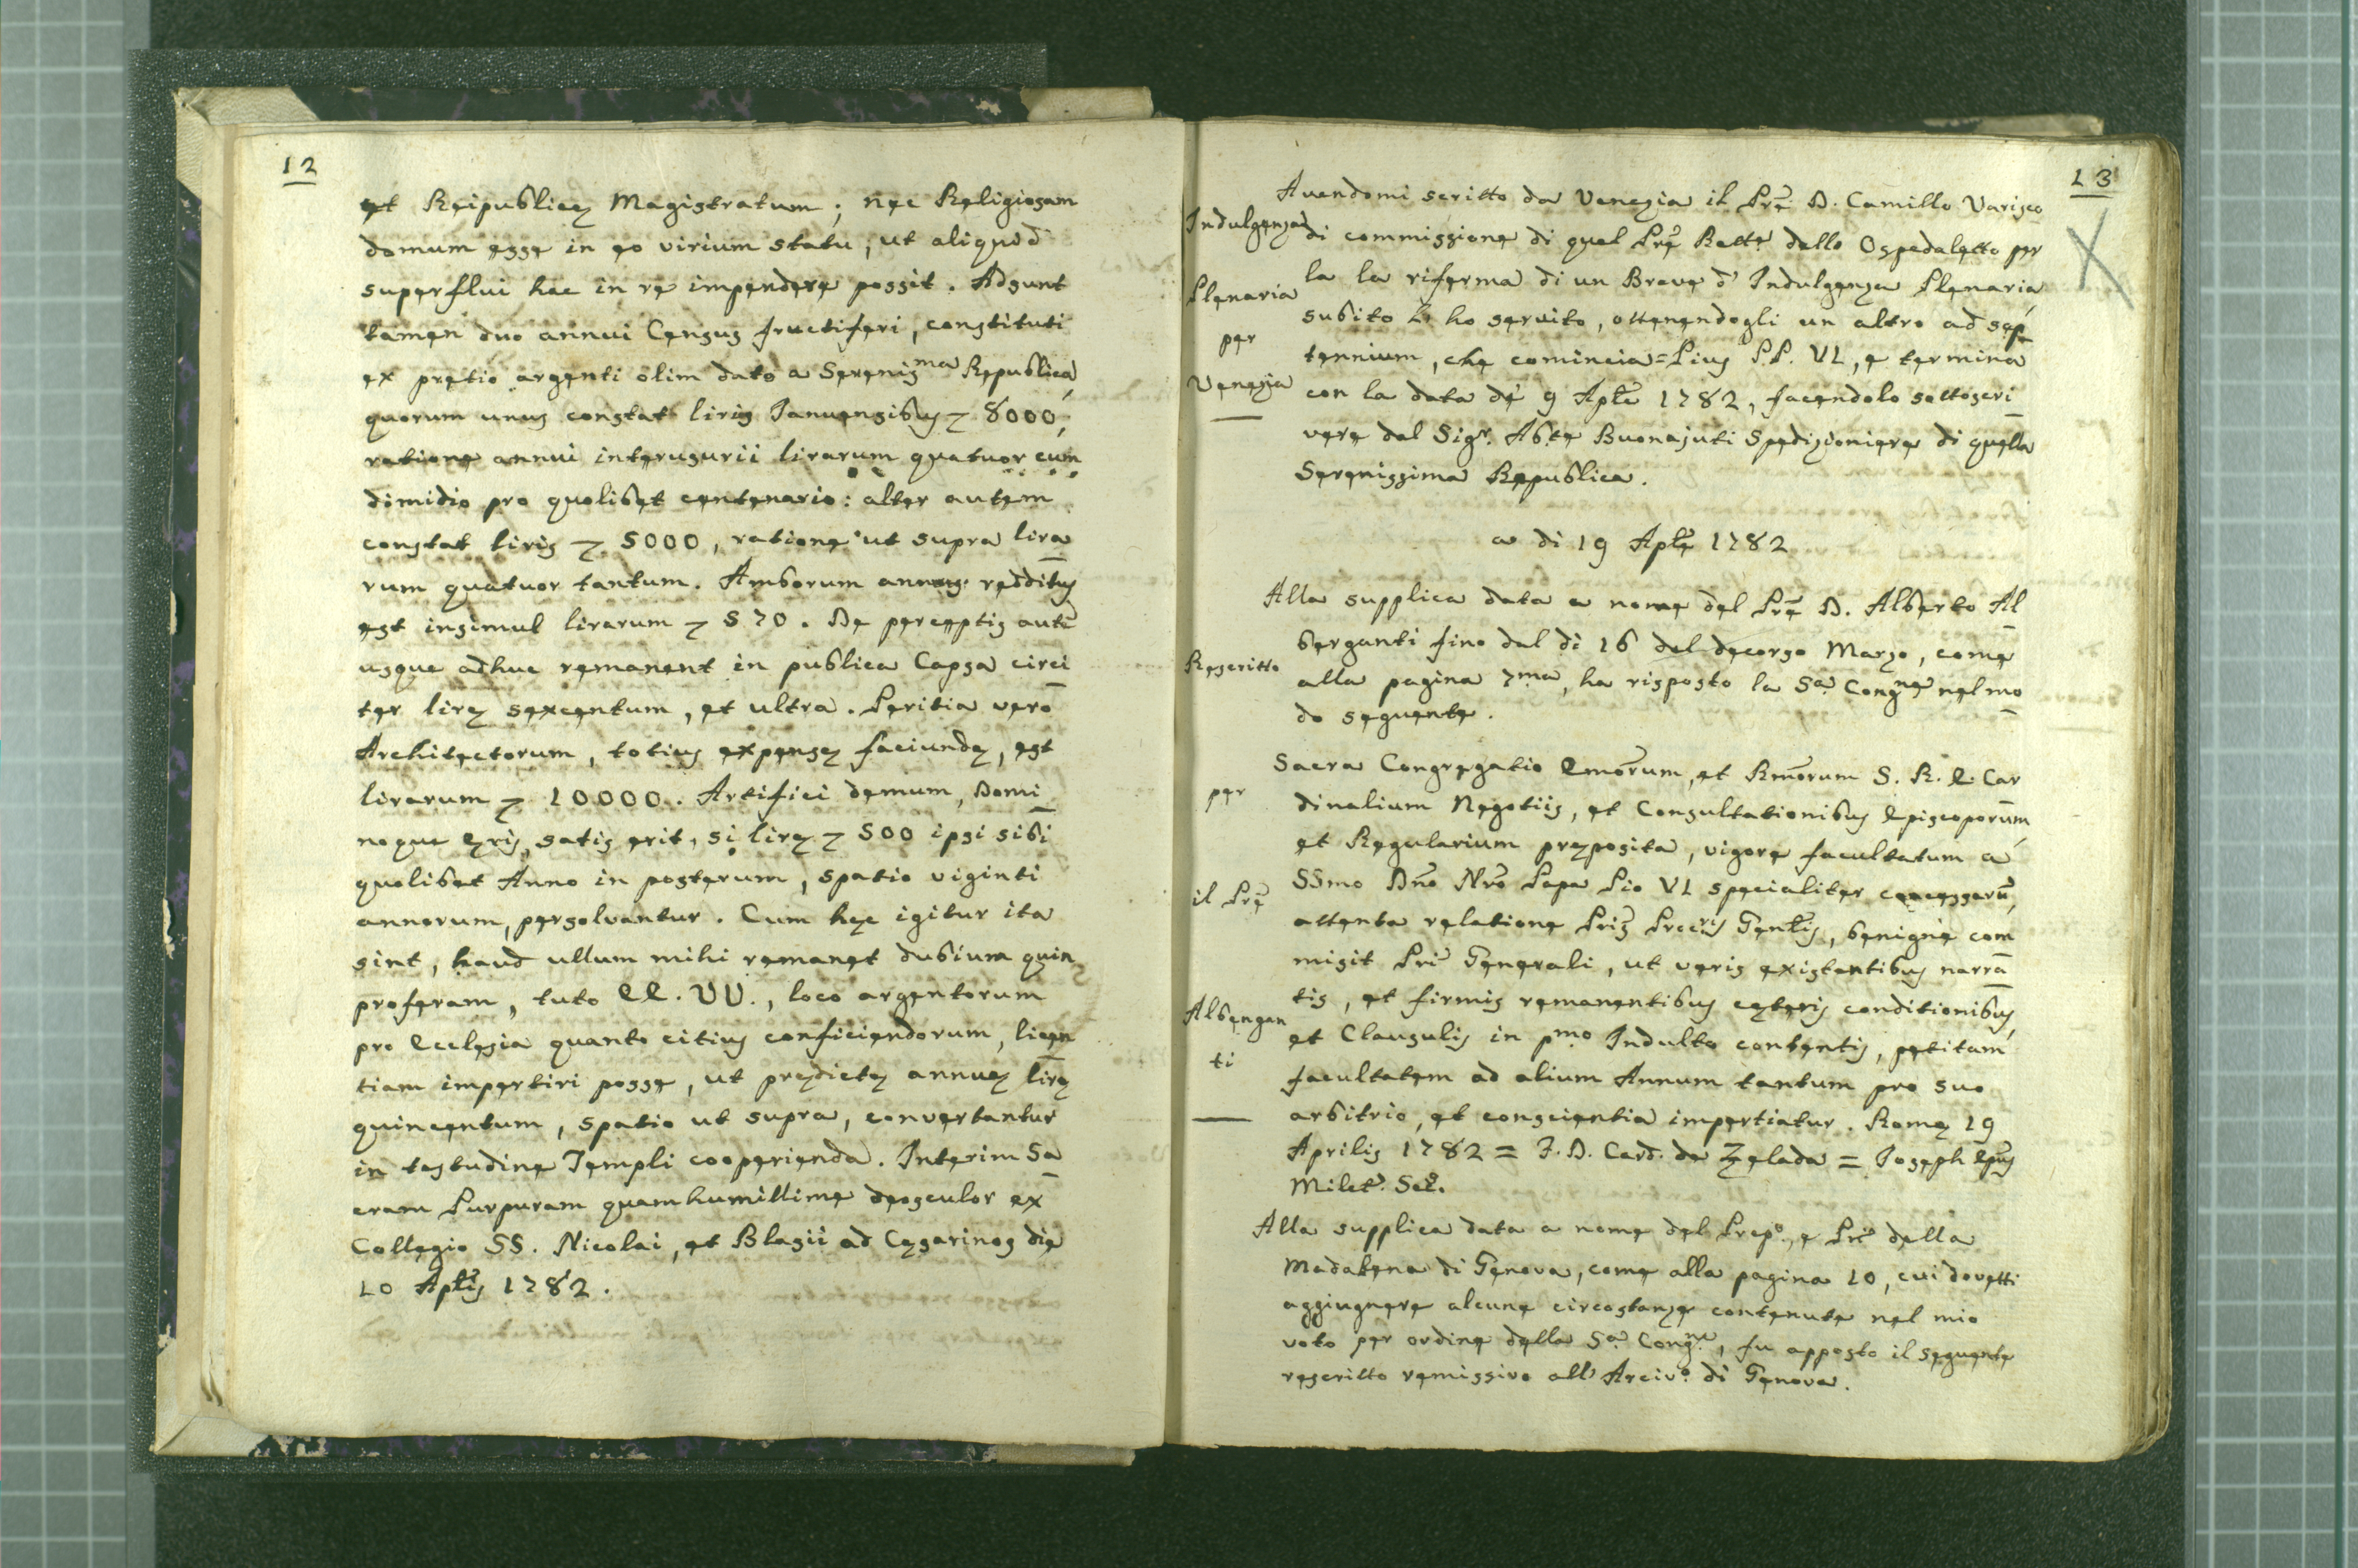 12
et Reipublicę Magistratum; nec Religiosam
domum esse in eo virium statu, ut aliquod
superflui hac in re impendere possit. Adsunt
tamen duo annui Census fructiferi, constituti
ex pretio argenti olim dato a Serenisma Republica,
quorum unus constat liris Januensibus 8000,
ratione annui interusurii lirarum quatuor cum
dimidio pro quolibet centenario: alter autem
constat liris 5000, ratione ut supra lira
rum quatuor tantum. Amborum annuus redditus
est insimul lirarum 570. De perceptis autē
usque adhuc remanent in publica Capsa circi
ter lirę sexcentum, et ultra. Peritia vero
Architectorum, totius expensę faciundę, est
lirarum 10000. Artifici demum, Domi
noque ęris, satis erit, si lirę 500 ipsi sibi
quolibet Anno in posterum, spatio viginti
annorum, persolvantur. Cum hęc igitur ita
sint, haud ullum mihi remanet dubium quin
proferam, tuto EE. VV., loco argentorum
pro Ecclesia quanto citius conficiendorum, licen
tiam impertiri posse, ut prędictę annuę lirę
quincentum, spatio ut supra, convertantur
in testudine Templi cooperienda. Interim Sa
cram Purpuram quam humillime deosculor ex
Collegio SS. Nicolai, et Blasii ad Cęsarinos die
10 Aplis 1782.
13
Avendomi scritto da Venezia il Prē D. Camillo Varisco
Indulgenza di commissione di quel Prē Rettē dello Ospedaletto per
la la riferma di un Breve d' Indulgenza Plenaria,
Plenaria
subito L' ho servito, ottenendogli un altro ad sep
per
tennium, che comincia=Pius P.P. VI, e termina
Venezia
con la data dè 9 Aplē 1782, facendolo sottoscri
vere dal Sigr. Abte Buonajuti Spedizioniere di quella
Serenissima Republica.
a di 19 Aplē 1782
Alla supplica data a nome del Prē D. Alberto Al
berganti fino dal di 16 del decorso Marzo, come
Rescritto
alla pagina 7ma, ha risposto la Sa Congne nel mo
do seguente.
Sacra Congregatio Emorum, et Rmorum S. R. E. Car
per
dinalium Negotiis, et Consultationibus Episcoporum,
et Regularium pręposita, vigore facultatum a
SSmo Dno Nro Papa Pio VI specialiter concessarū,
il Prē
attenta relatione Pris Procris Genlis, benignè com
misit Pri Generali, ut veris existentibus narra
tis, et firmis remanentibus cęteris conditionibus,
Albengan
et Clausulis in pmo Indulto contentis, petitam
ti
facultatem ad alium Annum tantum pro suo
arbitrio, et conscientia impertiatur. Romę 19
Aprilis 1782 = F. D. Card. de Zelada = Joseph Epus
Milet. Sec.
Alla supplica data a nome del Prepo., e Pri della
Madalena di Genova, come alla pagina 10, cui dovetti
aggiugnere alcune circostanze contenute nel mio
voto per ordine della Sa Congne, fu apposto il seguente
rescritto remissivo all' Arcivo. di Genova.